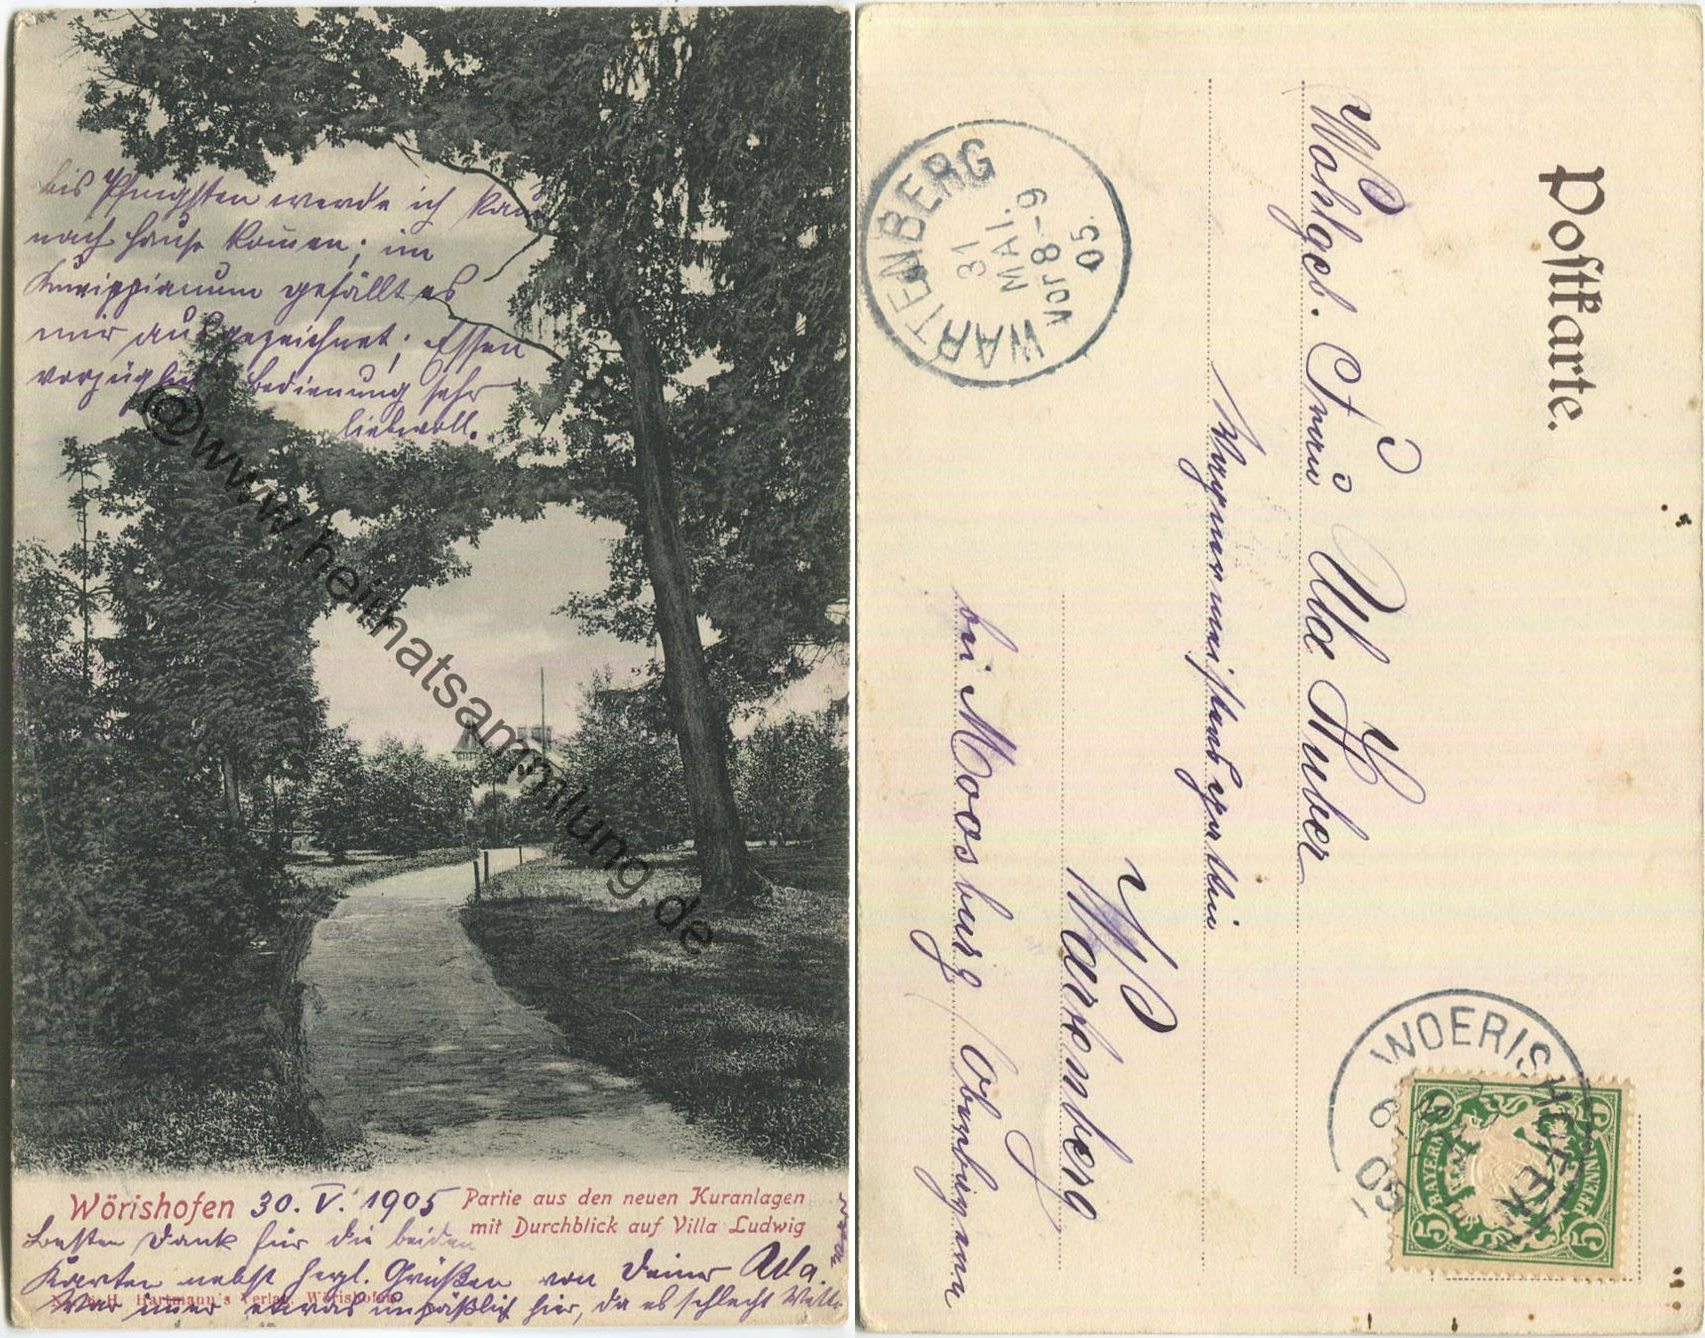 bis Pfingsten werde ich kaum
nach Hause kommen; im
Kneippianum gefällt es
mir ausgezeichnet; Essen
vorzüglich, Bedienung sehr
liebevoll.
@www.heimatsammlung.de
Wörishofen 30. V. 1905 Partie aus den neuen Kuranlagen
mit Durchblick auf Villa Ludwig
Besten Dank für die beiden
Karten nebst herzl. Grüßen von Deiner Ada.
Hartmann's Verlag, Wörishofen
War immer etwas unpäßlich hier, da es schlecht
Postkarte.
Wohlgeb. Frau
Huber
Wartenberg
bei Moosburg
WARTENBERG
31
MAI.
Vor 8-9
05.
WOERISHOFEN
05
BAYERN
5
5
5